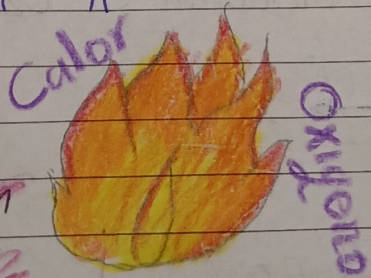 Calor
Oxigeno